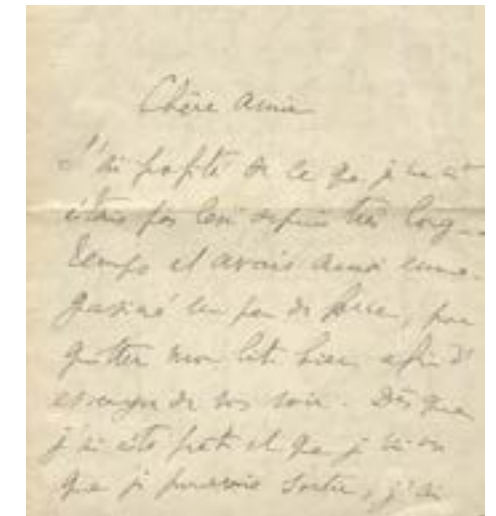 Chère amie
J'ai profité de ce que je ne m'
étais pas levé depuis très long-
temps et avais ainsi emma-
gasiné un peu de force, pour
quitter mon lit hier afin d'
essayer de vous voir. Dès que
j'ai été prêt et que j'ai vu
que je pourrais sortir, j'ai